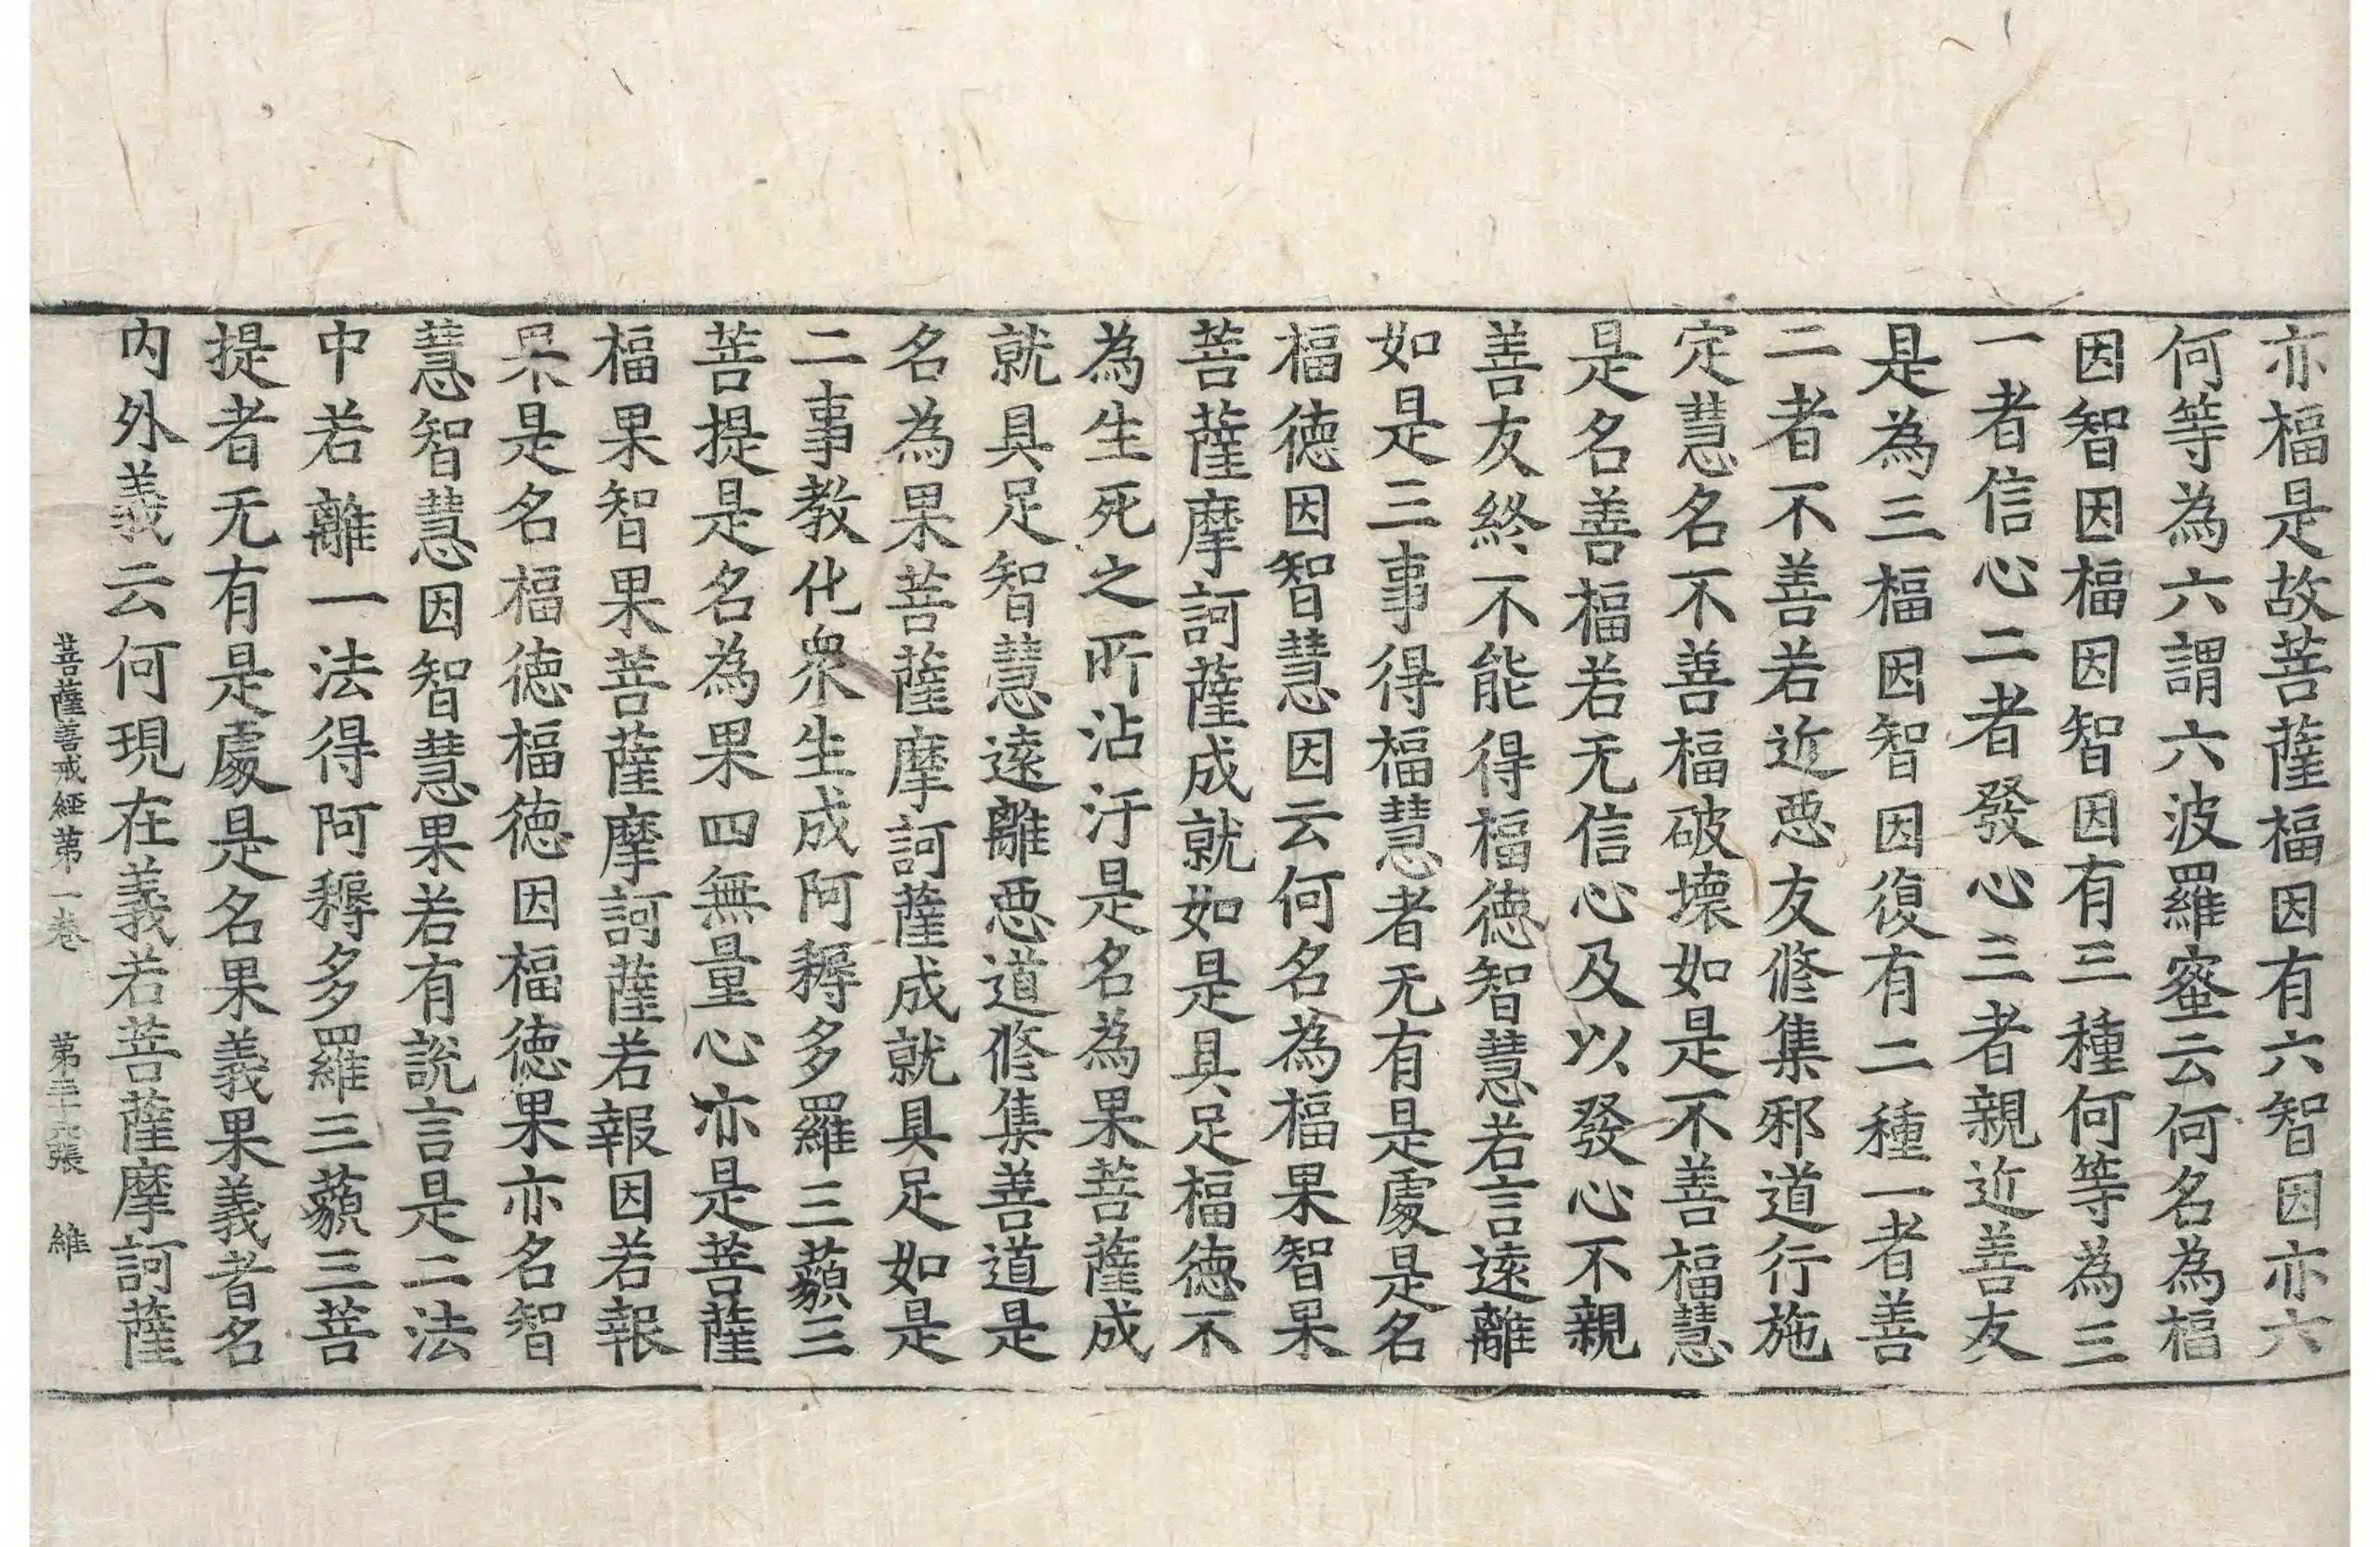 亦福是故菩薩福因有六智因亦六
何等為六謂六波羅蜜云何名為福
因智因福因智因有三種何等為三
一者信心二者發心三者親近善友
是為三福因智因復有二種一者善
二者不善若近惡友修集邪道行施
定慧名不善福破壞如是不善福慧
是名善福若无信心及以發心不親
善友終不能得福德智慧若言遠離
如是三事得福慧者无有是處是名
福德因智慧因云何名為福果智果
菩薩摩訶薩成就如是具足福德不
為生死之所沾汙是名為果菩薩成
就具足智慧遠離惡道修集善道是
名為果菩薩摩訶薩成就具足如是
二事教化衆生成阿耨多羅三藐三
菩提是名為果四無量心亦是菩薩
福果智果菩薩摩訶薩若報因若報
果是名福德福德因福德果亦名智
慧智慧因智慧果若有說言是二法
中若離一法得阿耨多羅三藐三菩
提者无有是處是名果義果義者名
內外義云何現在義若菩薩摩訶薩
菩薩善戒經第一卷 第 張 維